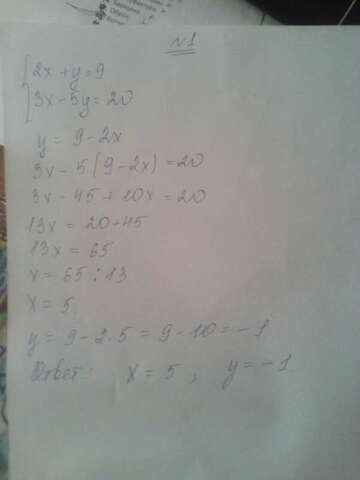 №1
2x + y = 9
3x - 5y = 20
y = 9 - 2x
3x - 5(9 - 2x) = 20
3x - 45 + 10x = 20
13x = 20 + 45
13x = 65
x = 65 : 13
x = 5
y = 9 - 2 · 5 = 9 - 10 = -1
Ответ: x = 5, y = -1